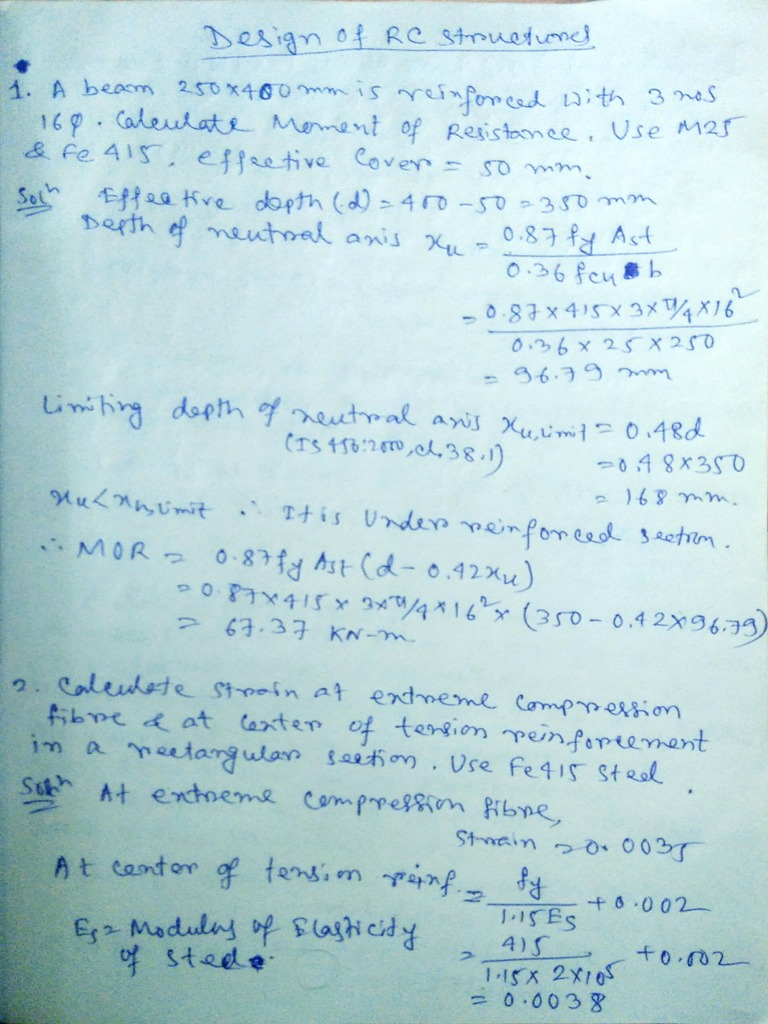 Design of RC Structures
1. A beam 250x400mm is reinforced with 3 nos
16φ. Calculate Moment of Resistance. Use M25
& Fe 415. effective Cover = 50 mm.
Solⁿ Effective depth (d) = 400 - 50 = 350 mm
Depth of neutral axis xu = 0.87 fy Ast / 0.36 fck b
= 0.87 x 415 x 3 x π/4 x 16² / 0.36 x 25 x 250
= 96.79 mm
Limiting depth of neutral axis xu,limit = 0.48d
(IS 456:2000, cl. 38.1) = 0.48 x 350
= 168 mm.
xu < xu,limit ∴ It is Under reinforced section.
∴ MOR = 0.87 fy Ast (d - 0.42xu)
= 0.87 x 415 x 3xπ/4 x 16² x (350 - 0.42x96.79)
= 67.37 KN-m
2. Calculate strain at extreme compression
fibre & at center of tension reinforcement
in a rectangular section. Use Fe415 steel.
Solⁿ At extreme compression fibre,
Strain = 0.0035
At center of tension reinf. = fy / 1.15 Es + 0.002
Es = Modulus of Elasticity = 415 / 1.15 x 2x10⁵ + 0.002
of steel.
= 0.0038